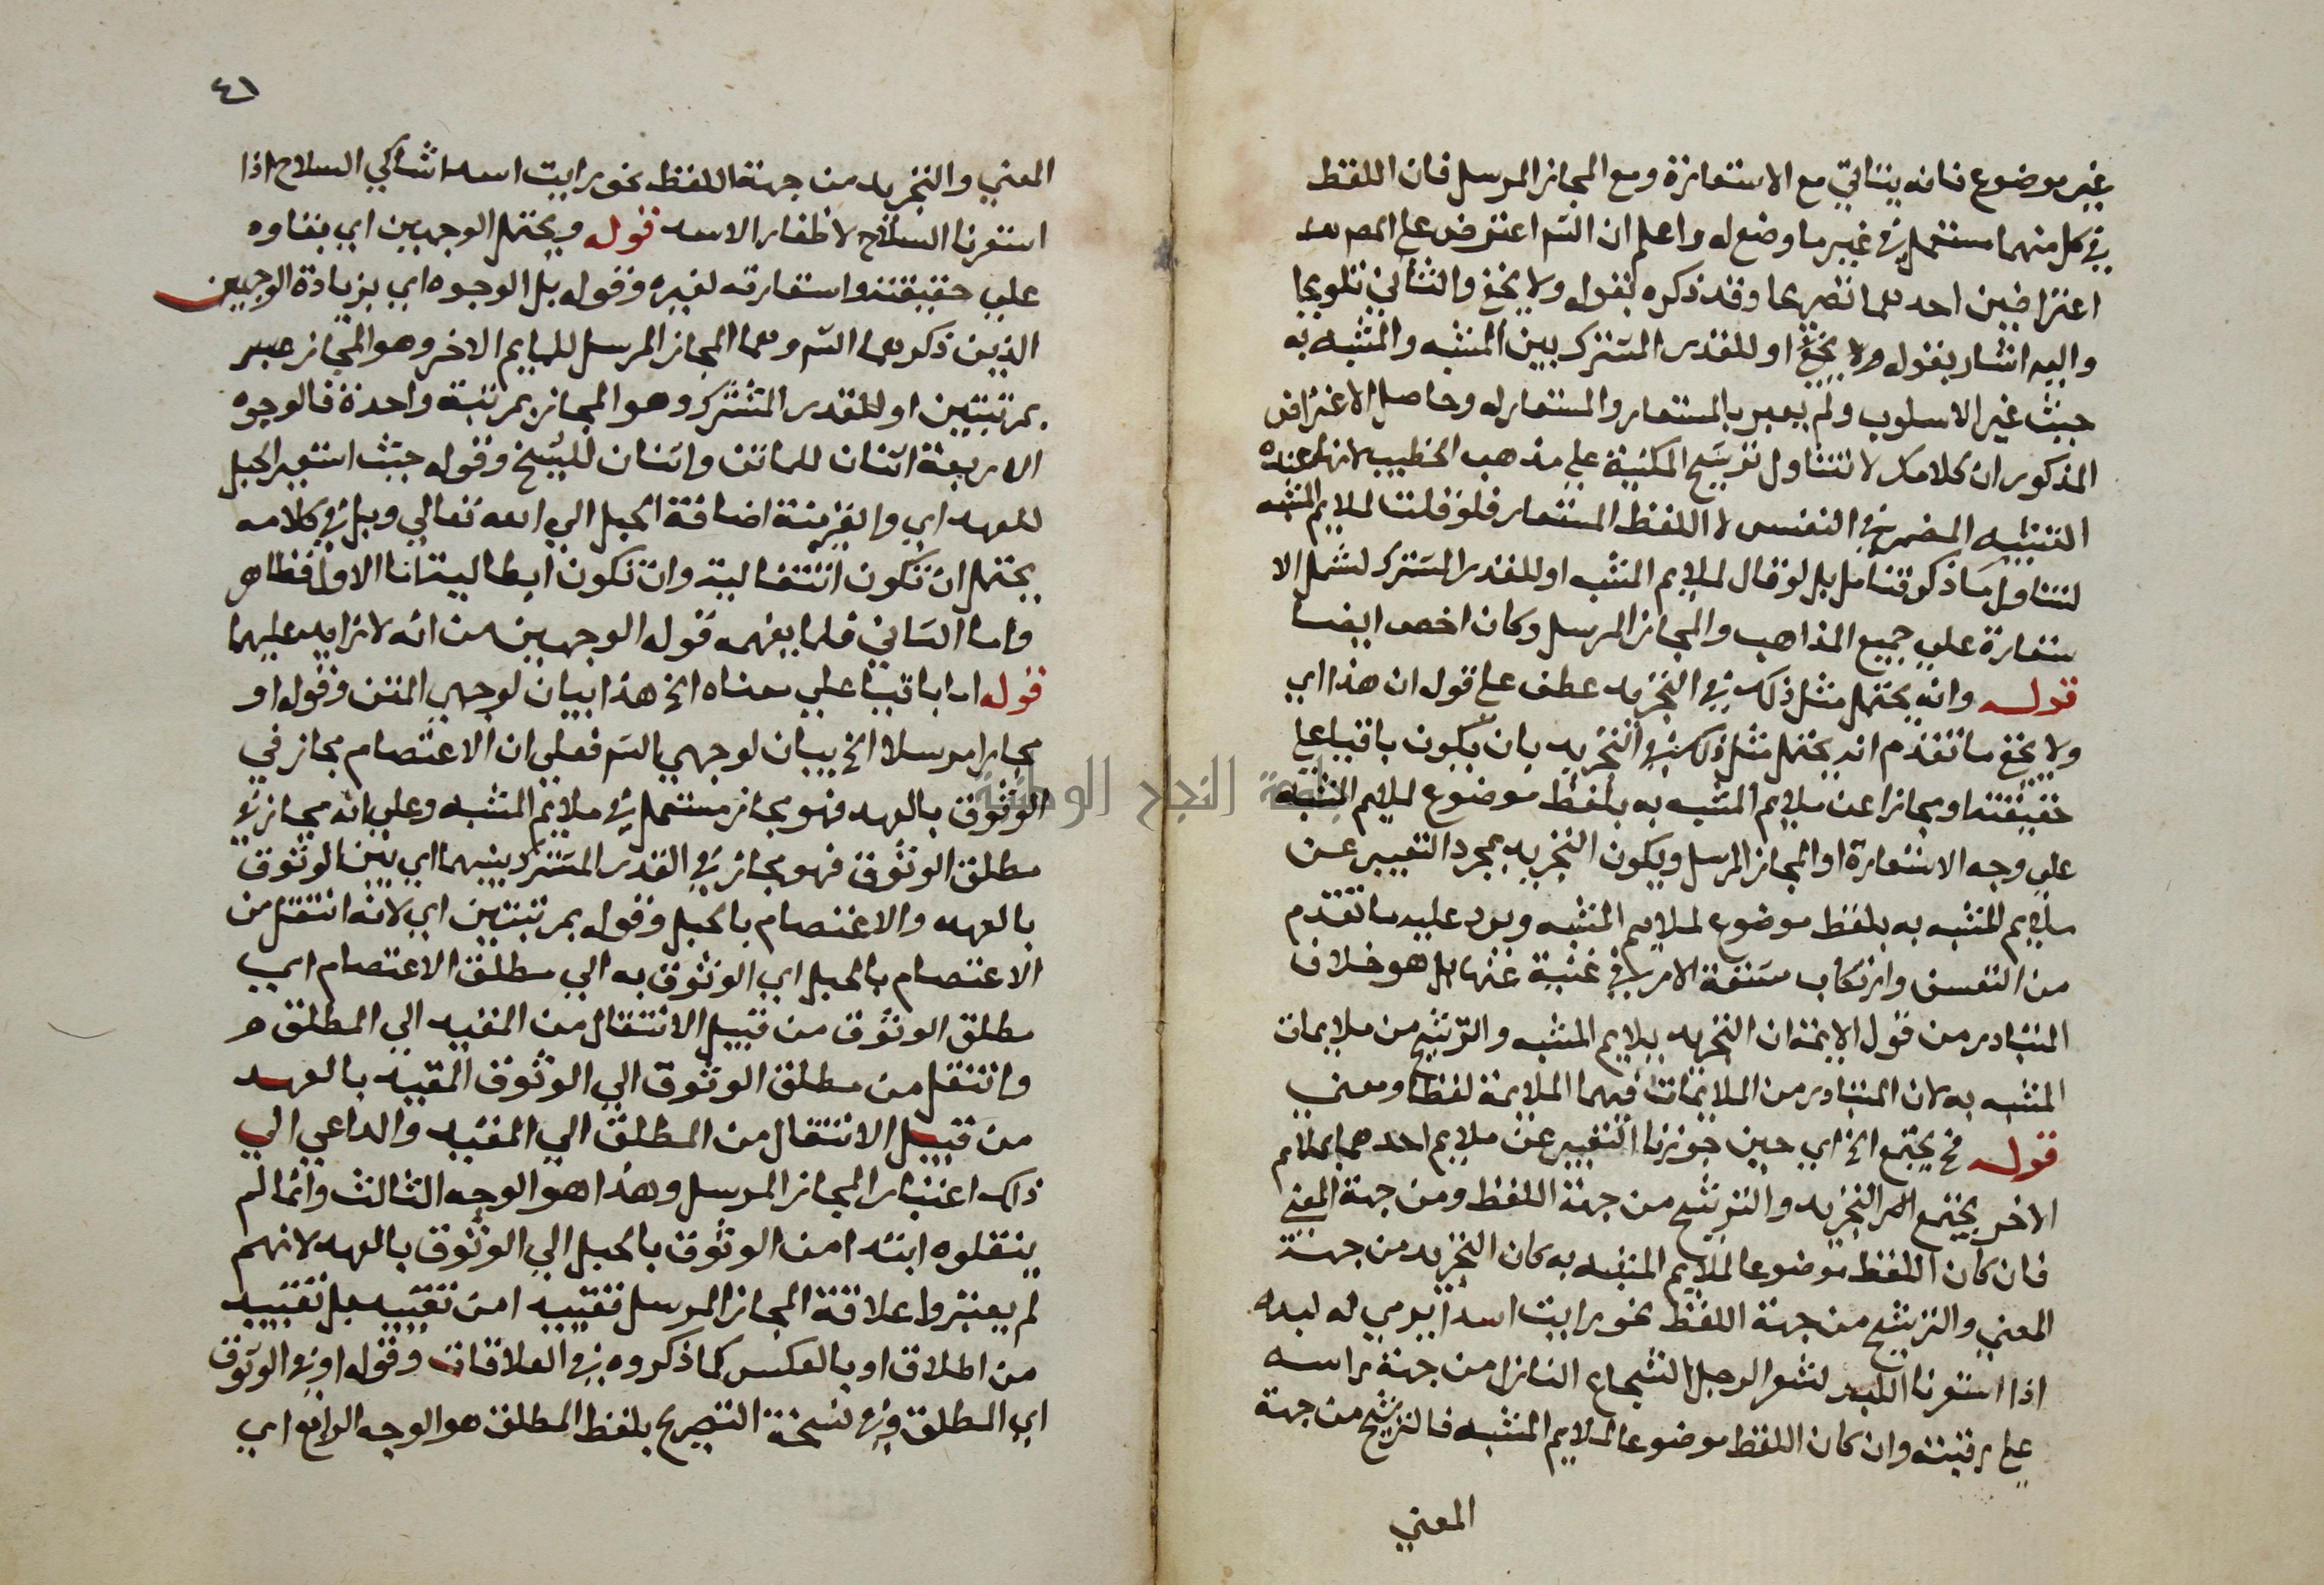 غير موضوع فانه يتاتي مع الاستعارة ومع المجاز المرسل فان اللفظ
في كل منهما مستعمل في غير ما وضع له واعلم ان الش اعترض على المص بعد
اعتراضين احدهما تصريحا وقد ذكره بقوله ولا يخفى والثاني تلويحا
واليه اشار بقوله ولا يخفى او للقدر المشترك بين المشبه والمشبه به
حيث غير الاسلوب ولم يعبر بالمستعار والمستعار له وحاصل الاعتراض
المذكور ان كلامك لا تتناول ترشيح المكنية على مذهب الخطيب لانها عنده
التشبيه المضمر في النفس لا اللفظ المستعار فلو قلت لملايم المشبه
لتناول ما ذكر فتامل بل لو قال لملايم المشبه او للقدر المشترك لشمل الا
ستعارة على جميع المذاهب والمجاز المرسل وكان اخصر ايضا
قوله وانه يحتمل مثل ذلك في التجريد عطف على قوله ان هذا اي
ولا يخفى ما تقدم انه يحتمل مثل ذلك في التجريد بان يكون باقيا على
حقيقته او مجازا عن ملايم المشبه به بلفظ موضوع لملايم المشبه
على وجه الاستعارة او المجاز المرسل ويكون التجريد بمجرد التعبير عن
ملايم المشبه به بلفظ موضوع لملايم المشبه ويرد عليه ما تقدم
من التعسف وارتكاب مشقة الامر في غنية عنها بل هو خلاف
المتبادر من قول الايمة ان التجريد بملايم المشبه والترشيح من ملايمات
المشبه به لان المتبادر من الملايمات فيهما الملايمة لفظا ومعنى
قوله فح يجتمع الخ اي حين جوزنا التعبير عن ملايم احدهما بملايم
الاخر يجتمع التجريد والترشيح من جهة اللفظ ومن جهة المعنى
فان كان اللفظ موضوعا لملايم المشبه به كان التجريد من جهة
المعنى والترشيح من جهة اللفظ نحو رايت اسدا يرمي له لبده
اذا استعرنا اللبد لشعر الرجل الشجاع النازل من جهة راسه
على رقبته وان كان اللفظ موضوعا لملايم المشبه فالترشيح من جهة
المعنى
٤١
المعنى والتجريد من جهة اللفظ نحو رايت اسدا شاكي السلاح اذا
استعرنا السلاح لاظفار الاسد قوله ويحتمل الوجهين اي بقاوه
على حقيقته واستعارته لغيره وقوله بل الوجوه اي بزيادة الوجهين
الذين ذكرهما الش وهما المجاز المرسل للملايم الاخر وهو المجاز
بمرتبتين او للقدر المشترك وهو المجاز بمرتبة واحدة فالوجوه
الاربعة اثنان للماتن واثنان للشيخ وقوله حيث استعير الحبل
للعهد اي والقرينة اضافة الحبل الى الله تعالى وبل في كلامه
يحتمل ان تكون انتقالية وان تكون ابطالية اما الاول فظاهر
واما الثاني فلما يفهمه قوله الوجهين من انه لا زايد عليهما
قوله اما باقيا على معناه الخ هذا بيان لوجهي المتن وقوله او
مجازا مرسلا الخ بيان لوجهي الش فعلى ان الاعتصام مجاز في
الوثوق بالعهد فهو مجاز مستعمل في ملايم المشبه وعلى انه مجاز في
مطلق الوثوق فهو مجاز في القدر المشترك بينهما اي بين الوثوق
بالعهد والاعتصام بالحبل وقوله بمرتبتين اي لانه انتقل من
الاعتصام بالحبل اي الوثوق به الى مطلق الاعتصام اي
مطلق الوثوق من قبيل الانتقال من المقيد الى المطلق
وانتقل من مطلق الوثوق الى الوثوق المقيد بالعهد
من قبيل الانتقال من المطلق الى المقيد والداعي الى
ذلك اعتبار المجاز المرسل وهذا هو الوجه الثالث وانما لم
ينقلوه ابتدا من الوثوق بالحبل الى الوثوق بالعهد لانهم
لم يعتبروا علاقة المجاز المرسل تقييدا من تقييد بل تقييد
من اطلاق او بالعكس كما ذكروه في العلاقات وقوله او في الوثوق
اي المطلق وفي نسخة التصريح بلفظ المطلق هو الوجه الرابع اي
النجاح الوطنية